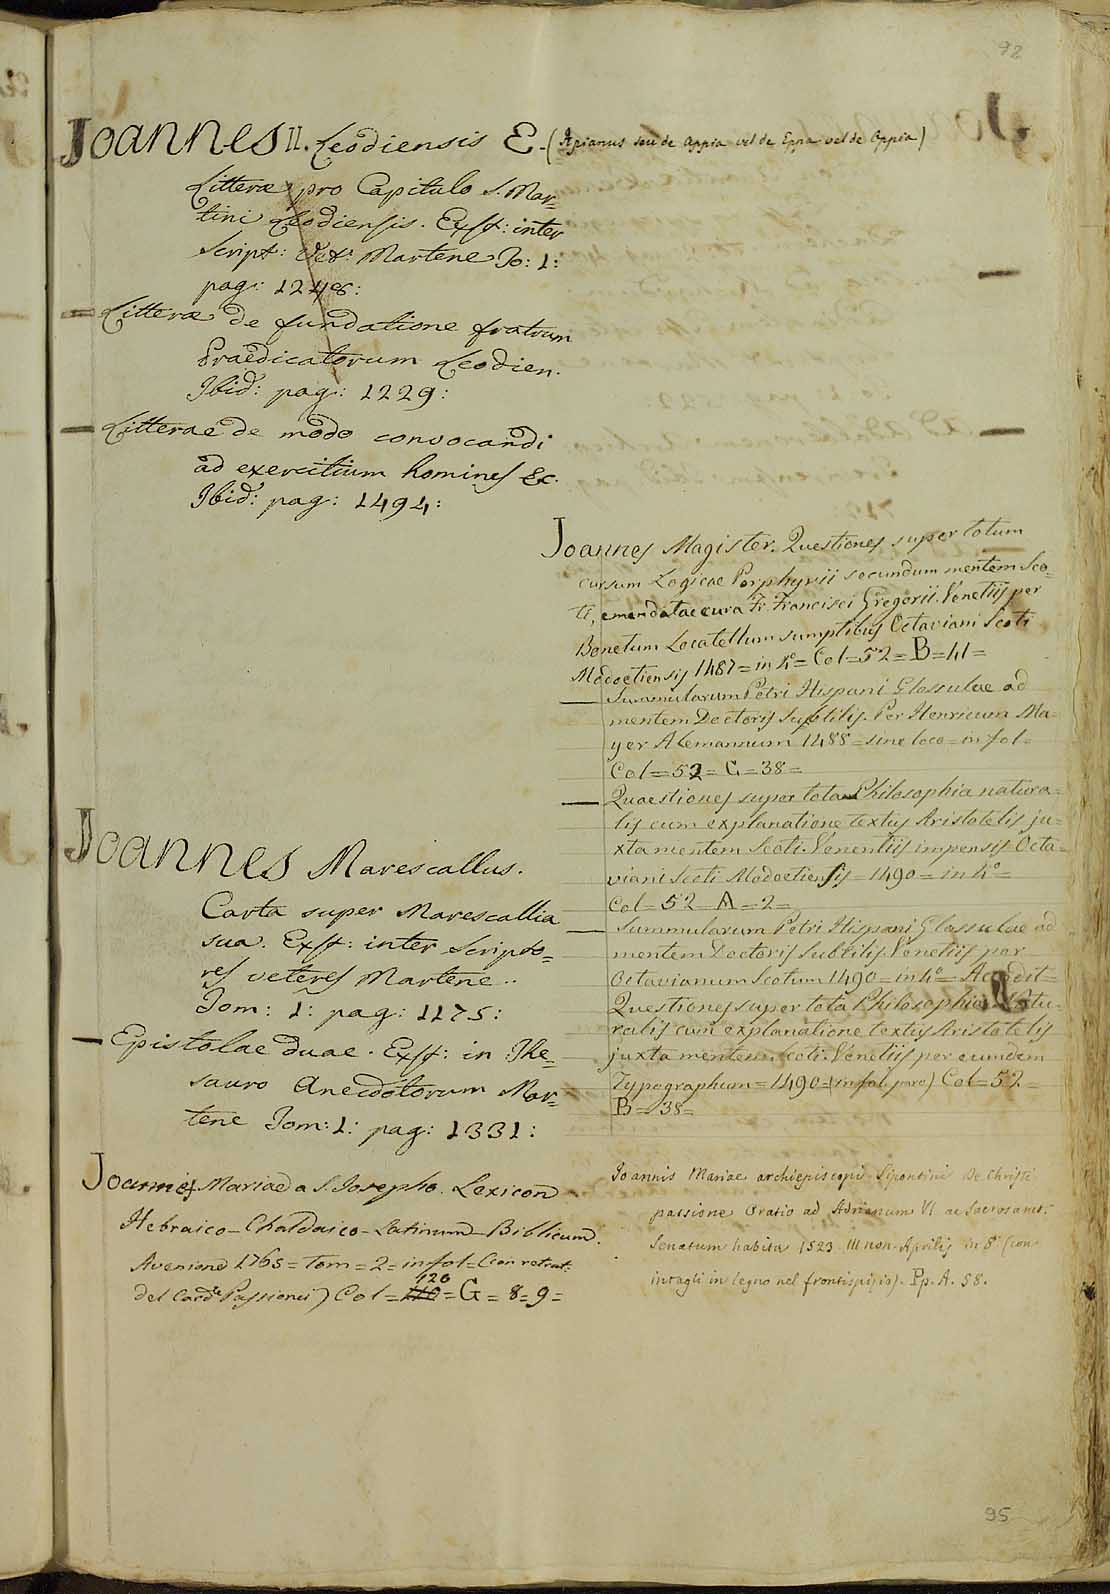 92
Joannes II. Leodiensis E. (Apianus seu de Appia vel de Eppa vel de Oppia)
Litterae pro Capitulo S. Mar=
tini Leodiensis. Exst: inter
Script: Vet: Martene To: 1:
pag: 1248:
= Litterae de fundatione fratrum
Praedicatorum Leodien.
Ibid: pag: 1229:
— Litterae de modo convocandi
ad exercitium homines &c.
Ibid: pag: 1494:
Joannes Marescallus.
Carta super Marescallia
sua. Exst: inter Scripto=
res veteres Martene..
Tom: 1: pag: 1175:
— Epistolae duae. Exst: in The=
sauro Anecdotorum Mar=
tene Tom: 1: pag: 1331:
Joannes Mariae a S. Josepho. Lexicon
Hebraico-Chaldaico-Latinum-Biblicum.
Avenione 1765 = tom = 2 = in fol = (con retrat:
del Card.e Passionei) Col = 120 = G = 8 = 9 =
Joannes Magister. Questiones super totum
cursum Logicae Porphyrii secundum mentem Sco=
ti, emendatae cura Fr. Francisci Gregorii. Venetiis per
Bonetum Locatellum sumptibus Octaviani Scoti
Modoetiensis 1487 = in 4º = Col = 52 = B = 41 =
— Summularum Petri Hispani Glossulae ad
mentem Doctoris Subtilis. Per Henricum Ma=
yer Alemannum 1488 = sine loco = in fol =
Col = 52 = G = 38 =
— Quaestiones super tota Philosophia natura=
lis cum explanatione textus Aristotelis ju=
xta mentem Scoti. Venentiis impensis Octa=
viani Scoti Modoetiensis = 1490 = in 4º =
Col = 52 A = 2 =
— Summularum Petri Hispani Glossulae ad
mentem Doctoris Subtilis. Venetiis per
Octavianum Scotum 1490 = in 4º = Accedit =
Questiones super tota Philosophia Natu=
ralis cum explanatione textus Aristotelis
juxta mentem Scoti. Venetiis per eumdem
Typographum = 1490 = (in fol. parv) Col = 52 =
B = 38 =
Joannis Mariae archiepiscopi Sipontini De Christi
passione Oratio ad Adrianum VI ac Sacrosanct.
Senatum habita 1523 III non. Aprilis in 8º (con
intagli in legno nel frontispizio). Pp. A. 58.
95